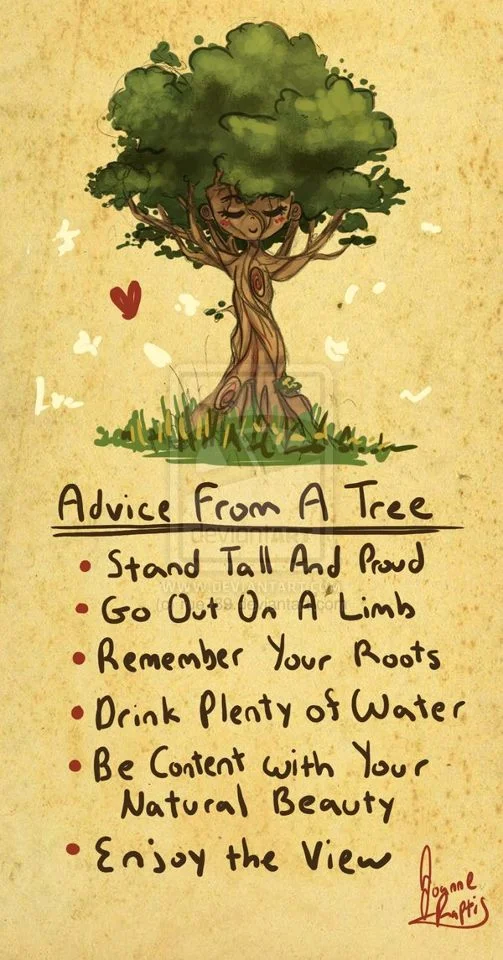 Love
deviantART
Advice From A Tree
• Stand Tall And Proud
WWW.DEVIANTART.COM
• Go Out On A Limb
• Remember Your Roots
• Drink Plenty of Water
• Be Content with Your
Natural Beauty
• Enjoy the View
Joanne
Raptis